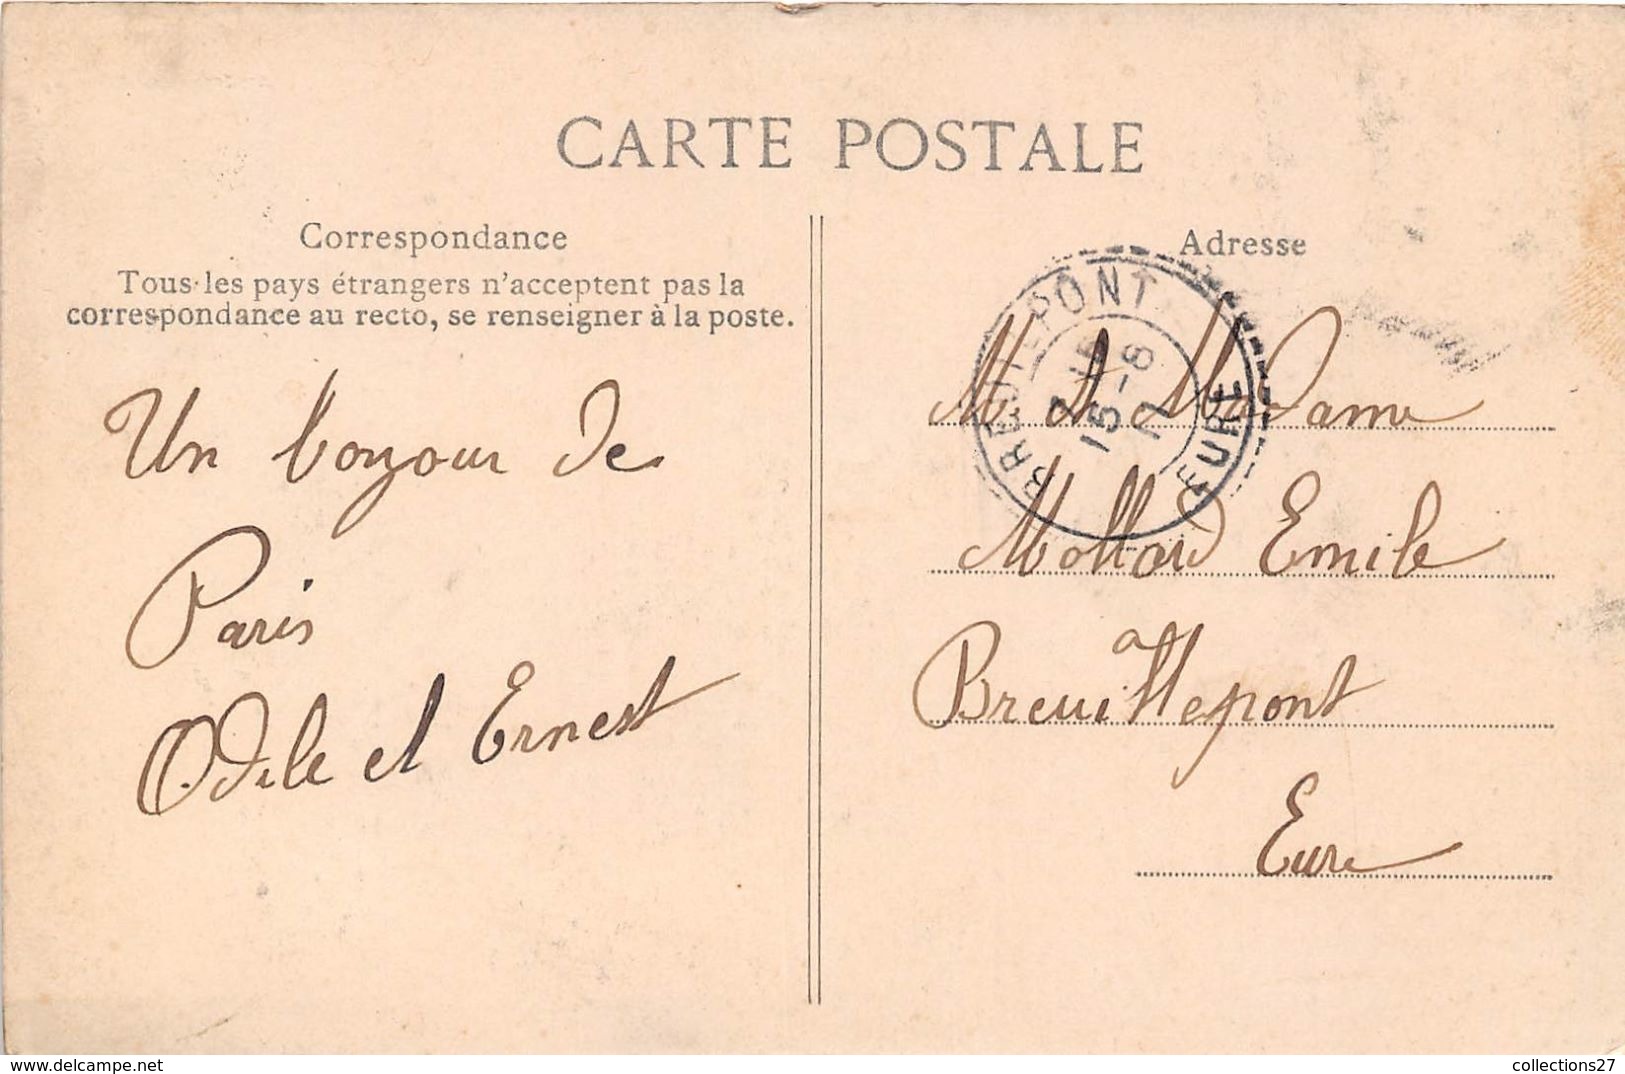 CARTE POSTALE
Correspondance
Tous les pays étrangers n'acceptent pas la
correspondance au recto, se renseigner à la poste.
Un bonjour de
Paris
Odile et Ernest
Adresse
BREUILPONT
7 15
15 - 8
EURE
M et Madame
Mollard Emile
a
Breuillepont
Eure
delcampe.net
collections27